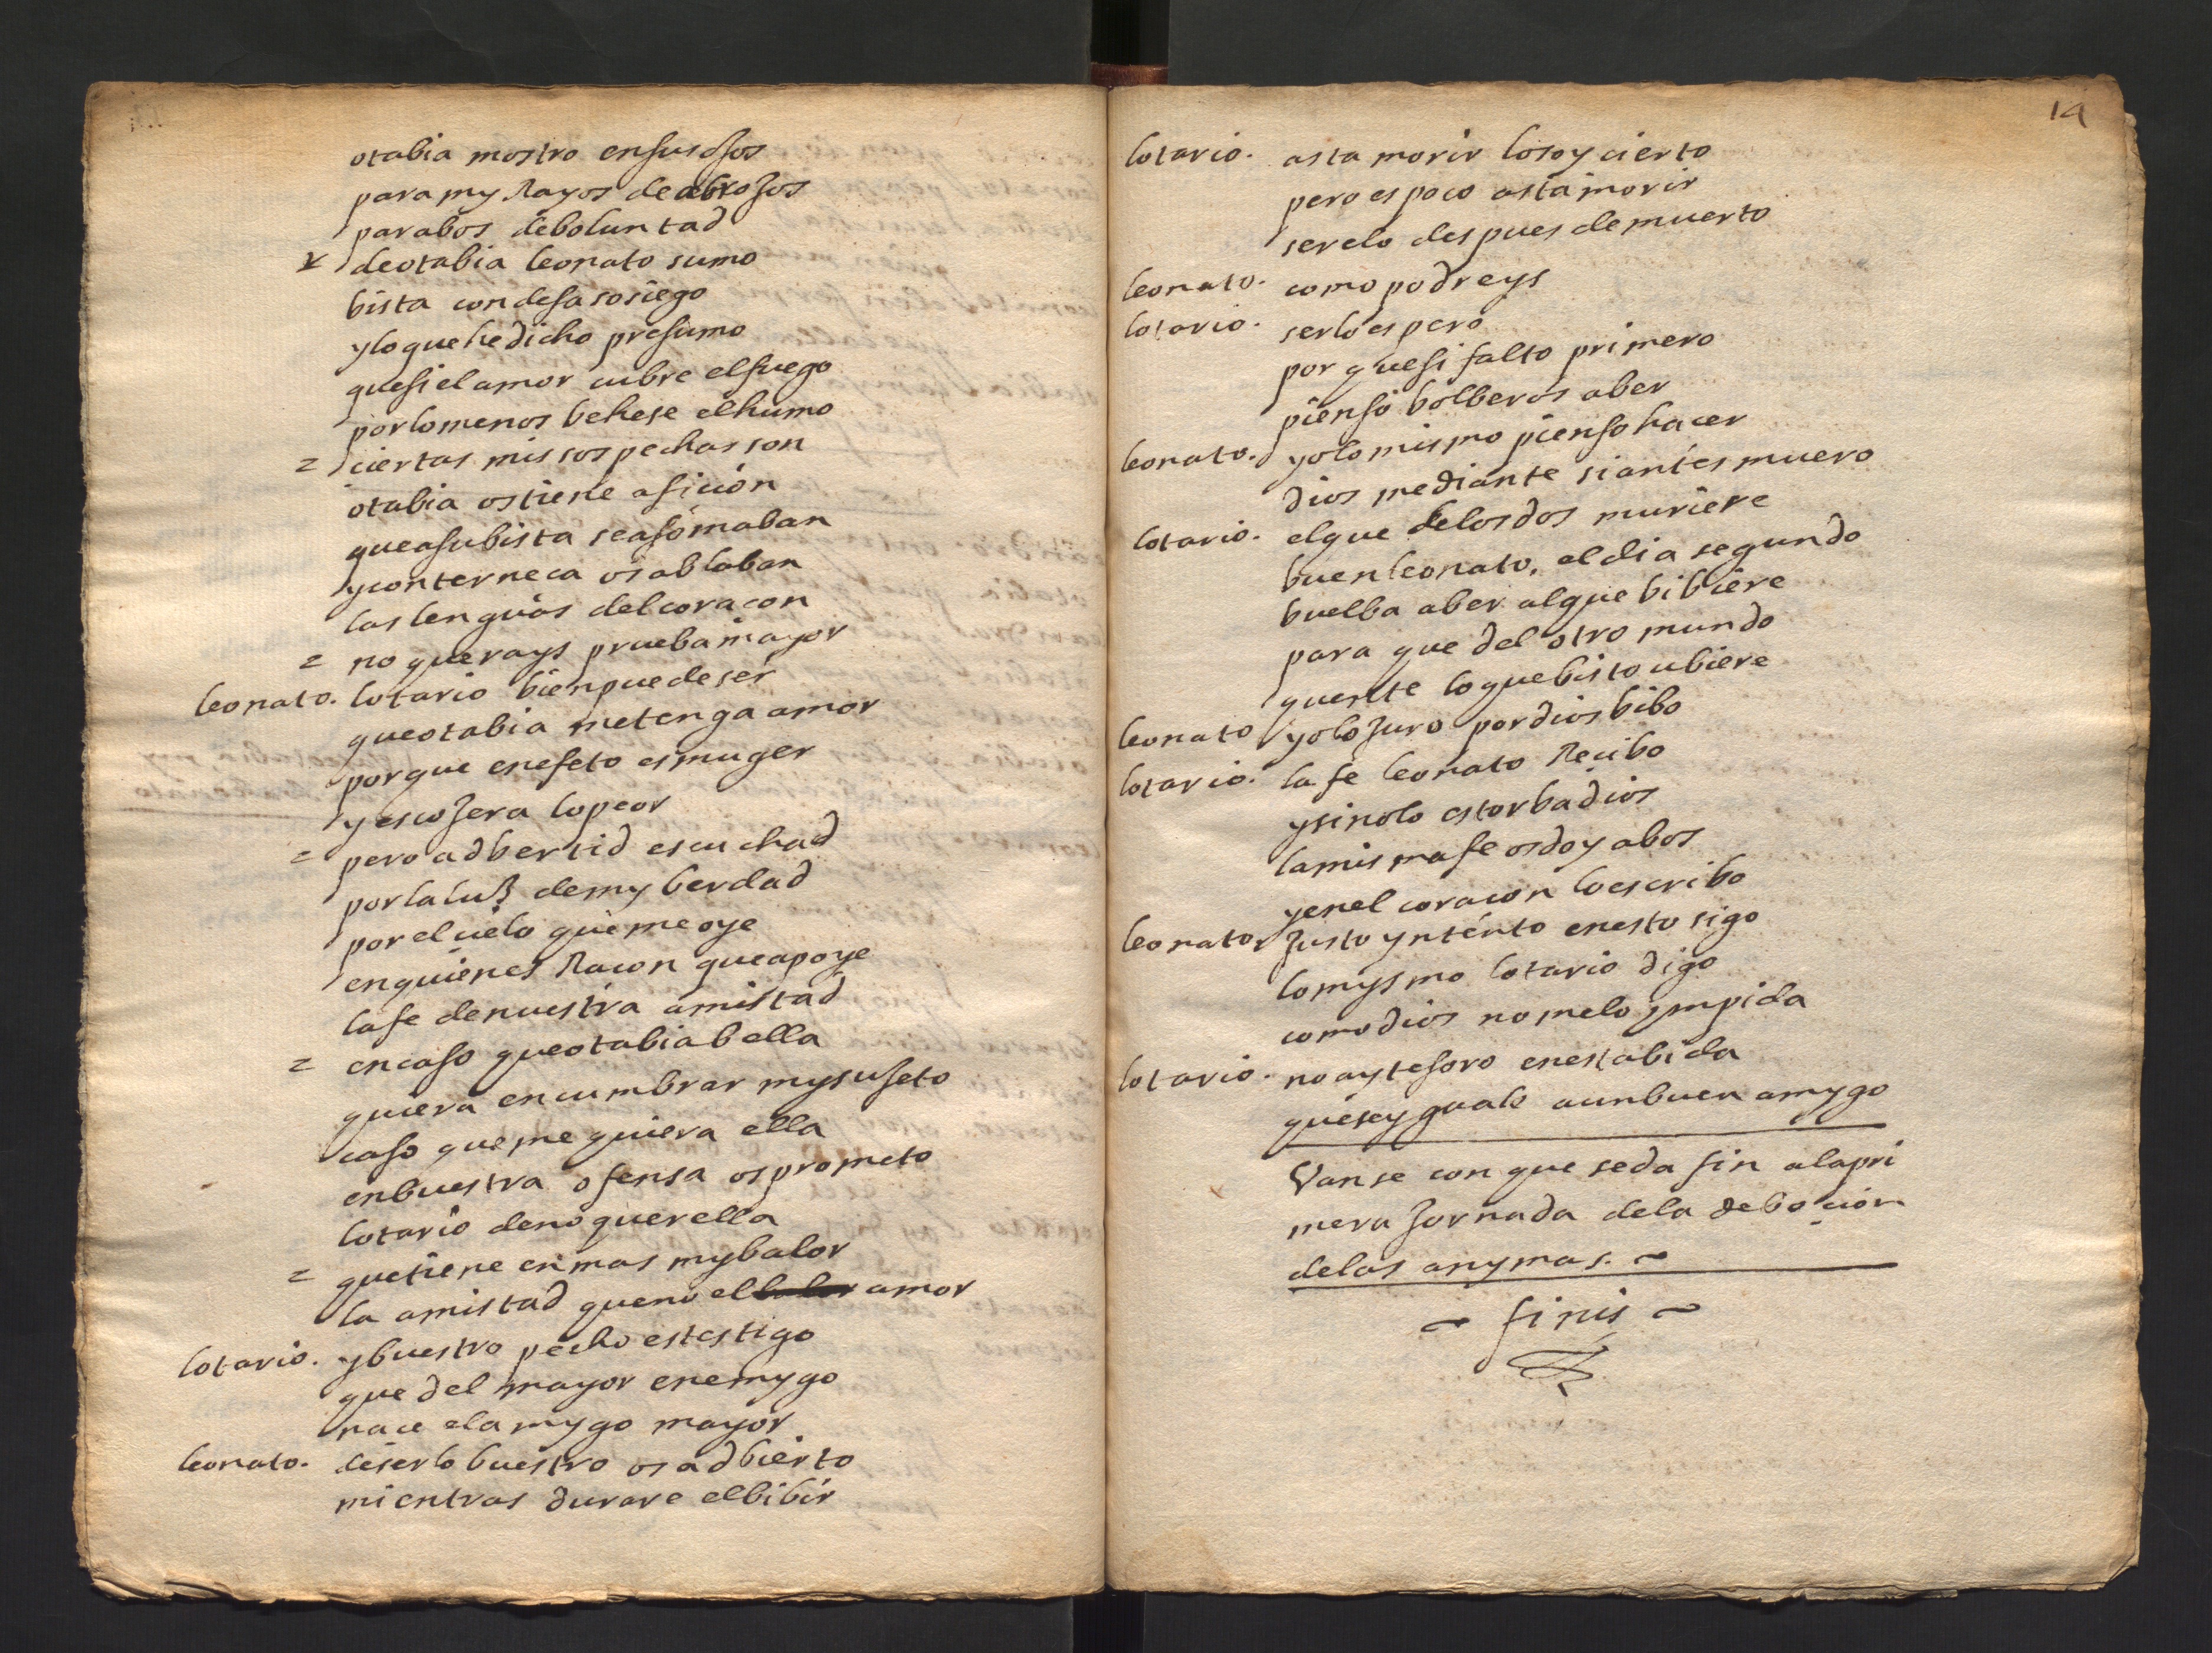 otabia mostro ensus ojos
para my Rayos de abrojos
parabos deboluntad
deotabia leonato sumo
bista con desasosiego
ylo que he dicho presumo
quesi el amor cubre elfuego
porlomenos behese elhumo
= ciertas mis sospechas son
otabia ostiene aficion
que asubista seasomaban
yconterneca os ablaban
las lenguas delcoracon
= no querays prueba mayor
leonato. lotario bienpuedeser
queotabia metenga amor
porque enefeto esmuger
yescojera lopeor
= pero adbertid escuchad
porlaluz demy berdad
por el cielo que me oye
enquienes Racon queapoye
lafe denuestra amistad
= encaso queotabiabella
quiera encumbrar mysujeto
caso que me quiera ella
enbuestra ofensa osprometo
lotario deno querella
= quetiene enmas mybalor
la amistad queno el balor amor
lotario. ybuestro pecho estestigo
que del mayor enemygo
nace elamygo mayor
leonato. deserlo buestro os adbierto
mientras durare elbibir
14
lotario. asta morir losoy cierto
pero es poco asta morir
serelo despues de muerto
leonato. como podreys
lotario. serlo espero
por quesi falto primero
pienso bolberos aber
leonato. yolo mismo pienso hacer
dios mediante si antes muero
lotario. elque delosdos muriere
buenleonato, eldia segundo
buelba aber alque bibiere
para que del otro mundo
quente loquebisto ubiere
leonato yolo juro pordios bibo
lotario. lafe leonato Recibo
ysinolo estorbadios
lamismafe osdoy abos
yenel coracon loescribo
leonato. Justo yntento enesto sigo
lomysmo lotario digo
comodios nomelo ympida
lotario. noaytesoro enestabida
queseyguale aunbuen amygo
Vanse con que seda fin alapri
mera jornada dela debocion
delas anymas. ~
~ finis ~